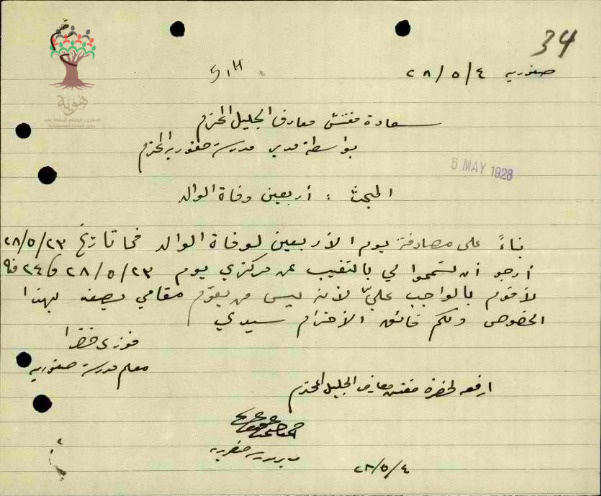 34
صفوريه ٢٨/٥/٤
سعادة مفتش معارف الجليل المحترم
بواسطة مدير مدرسة صفوريه المحترم
6 MAY 1928
المبحث : أربعين وفاة الوالد
بناءً على مصادفة يوم الأربعين لوفاة الوالد في تاريخ ٢٨/٥/٢٣
أرجو أن تسمحوا لي بالتغيب عن مركزي يوم ٢٨/٥/٢٣ و ٢٤ منه
لأقوم بالواجب عليّ لأنه ليس من يقوم مقامي بصفه بهذا
الخصوص ولكم فائق الأحترام سيدي
فوزي
معلم مدرسة صفوريه
ارفعه لحضرة مفتش معارف الجليل المحترم
مدير مدرسة صفوريه
٢٨/٥/٤
هوية